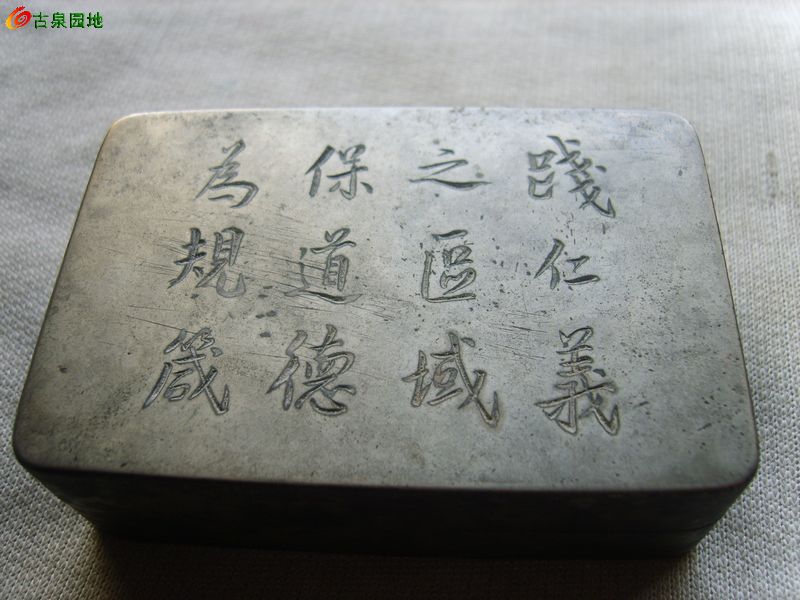 古泉园地
踐仁義
之區域
保道德
為規箴